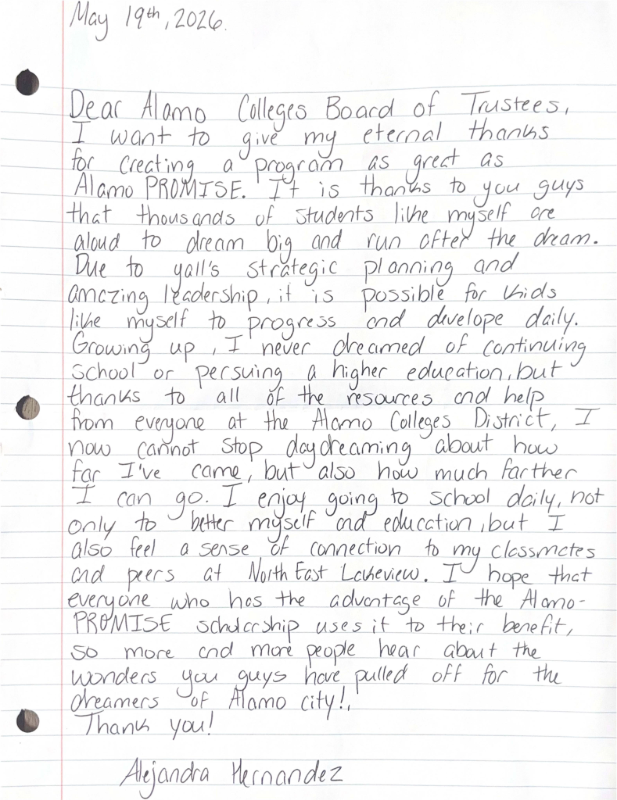 May 19th, 2026.
Dear Alamo Colleges Board of Trustees,
I want to give my eternal thanks
for creating a program as great as
Alamo PROMISE. It is thanks to you guys
that thousands of students like myself are
aloud to dream big and run after the dream.
Due to yall's strategic planning and
amazing leadership, it is possible for kids
like myself to progress and develope daily.
Growing up, I never dreamed of continuing
school or persuing a higher education, but
thanks to all of the resources and help
from everyone at the Alamo Colleges District, I
now cannot stop daydreaming about how
far I've came, but also how much farther
I can go. I enjoy going to school daily, not
only to better myself and education, but I
also feel a sense of connection to my classmates
and peers at North East Lakeview. I hope that
everyone who has the advantage of the Alamo-
PROMISE scholarship uses it to their benefit,
so more and more people hear about the
wonders you guys have pulled off for the
dreamers of Alamo city!,
Thank you!
Alejandra Hernandez